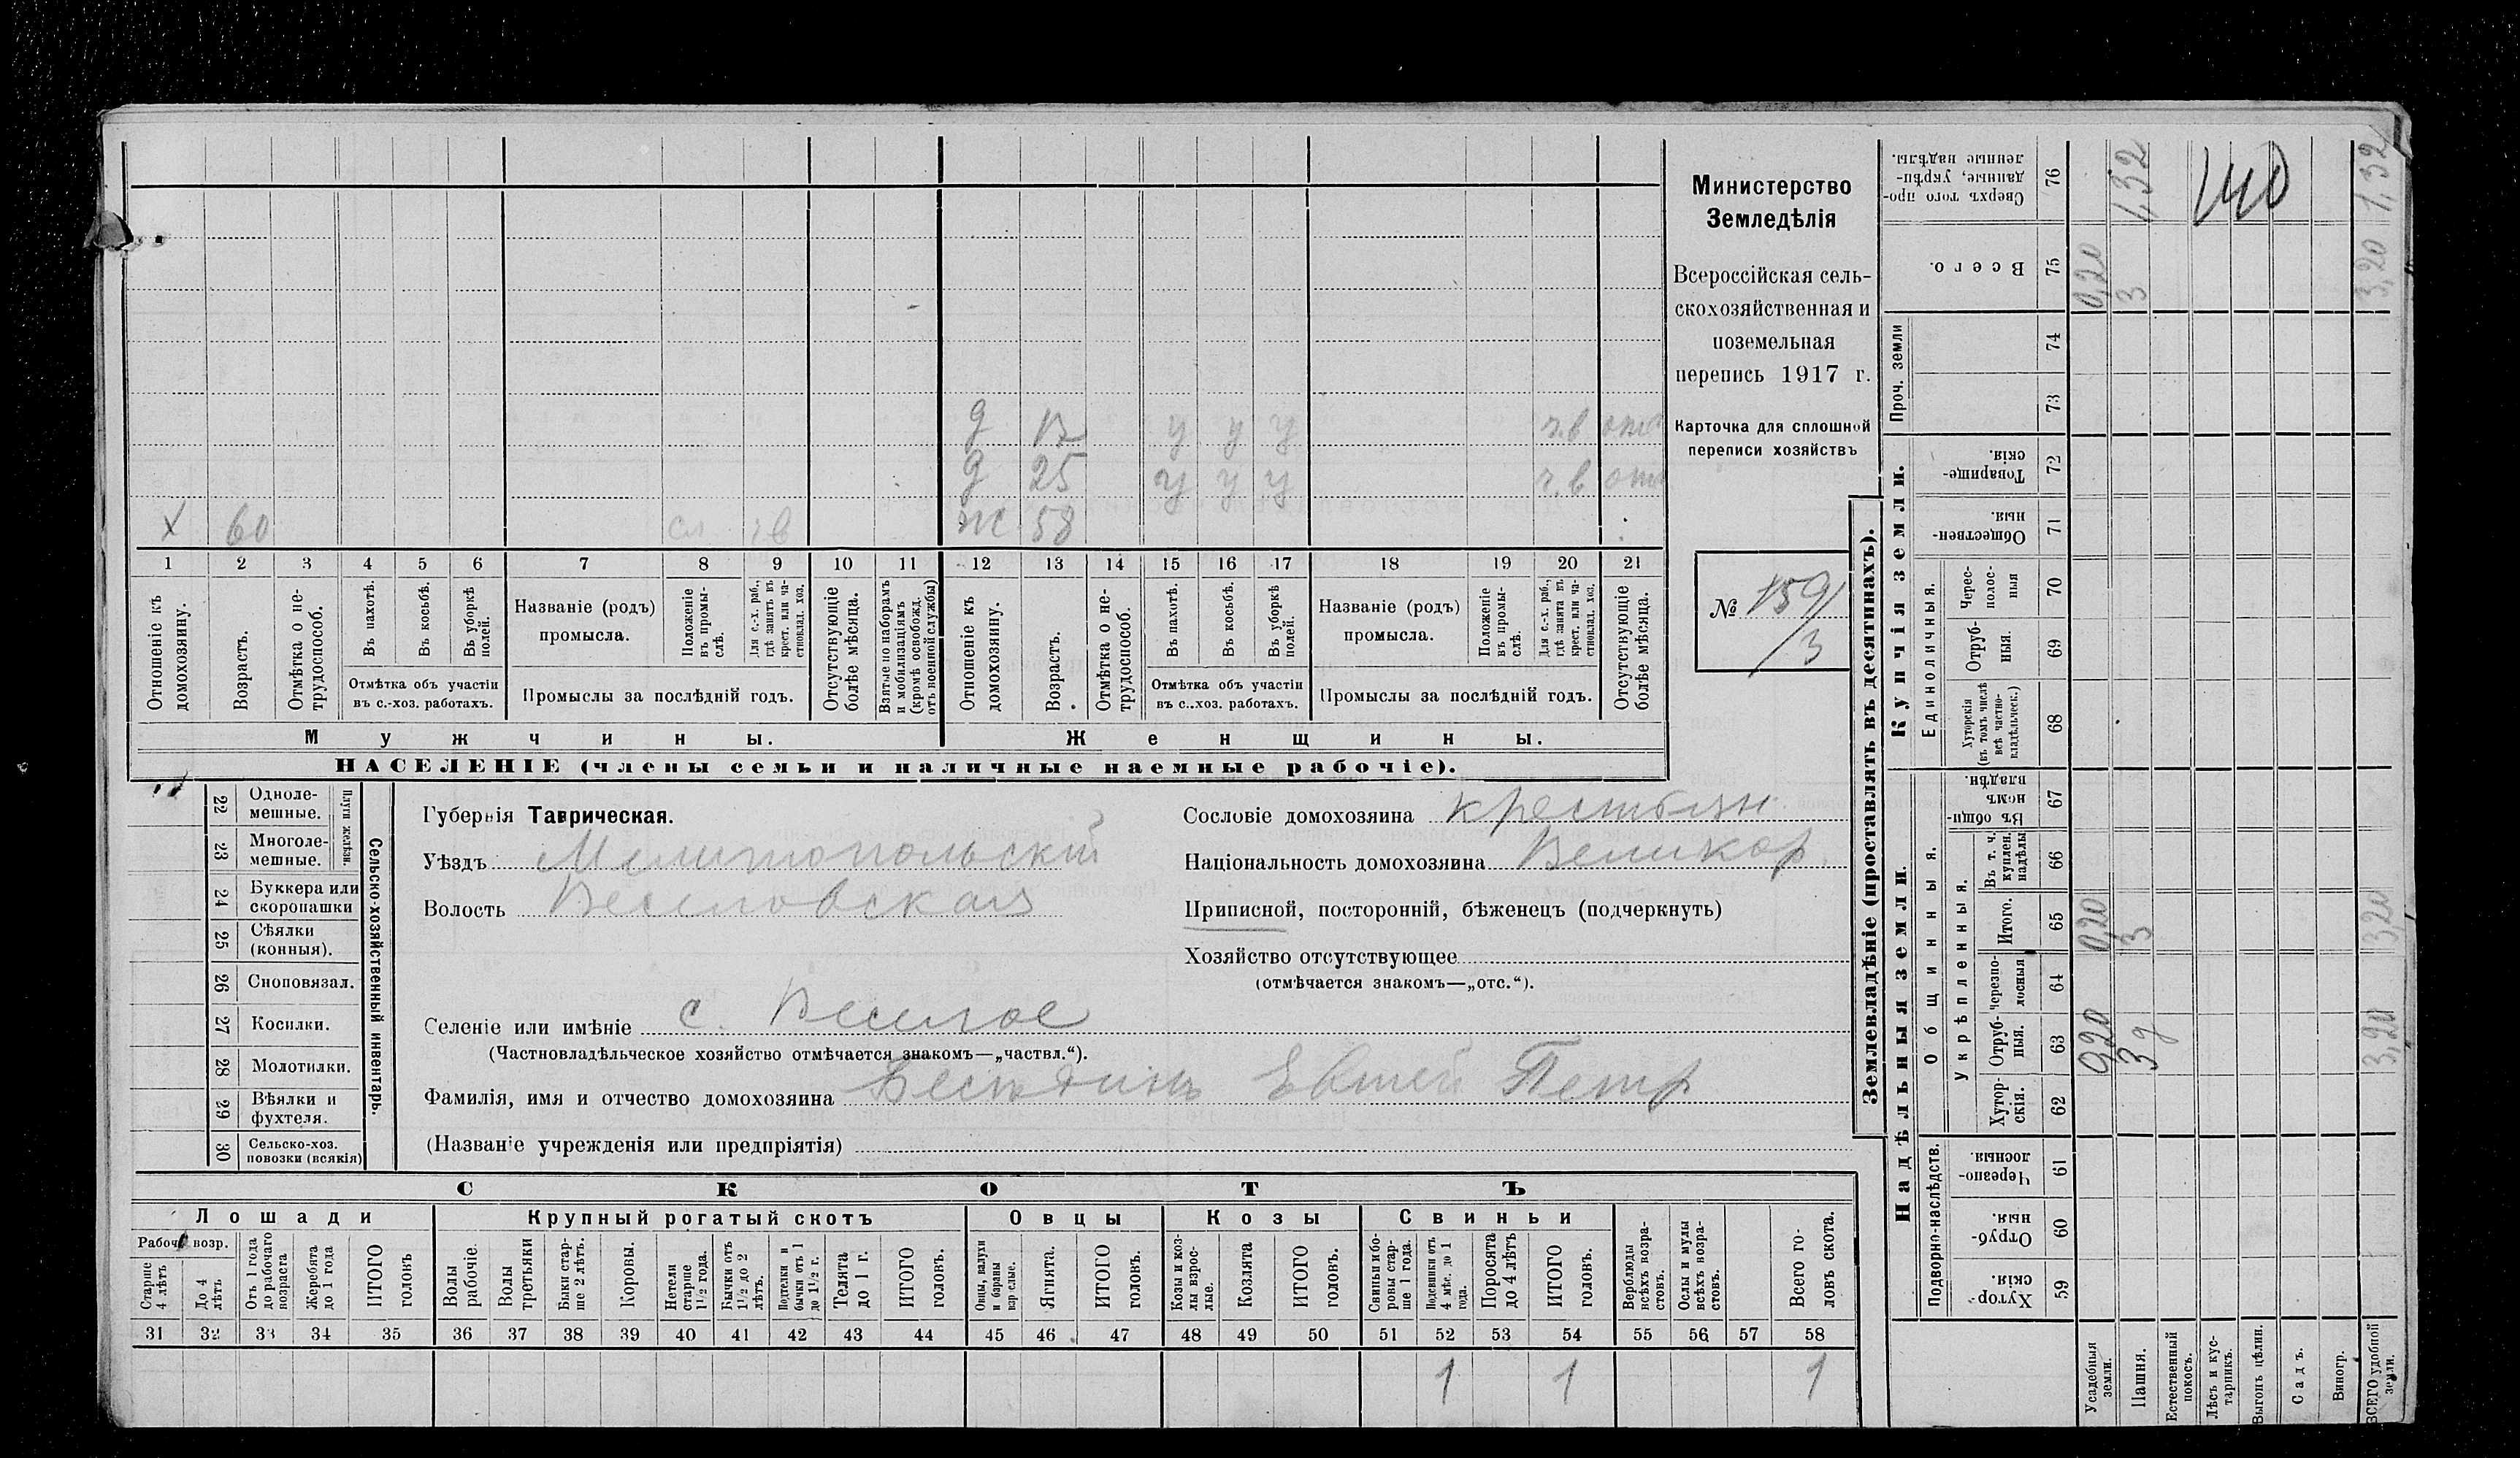 Министерство
Земледѣлія
Всероссійская сель-
скохозяйственная и
поземельная
перепись 1917 г.
Карточка для сплошной
переписи хозяйствъ
№ 159/3
д 17 у у у ч.в отс
д 25 у у у ч.в отс
х 60 сл ч в ж 58
1 2 3 4 5 6 7 8 9 10 11 12 13 14 15 16 17 18 19 20 21
Отношеніе къ домохозяину.
Возрастъ.
Отмѣтка о не-трудоспособ.
Въ пахотѣ.
Въ косьбѣ.
Въ уборкѣ полей.
Отмѣтка объ участіи
въ с.-хоз. работахъ.
Названіе (родъ)
промысла.
Положеніе въ промы-слѣ.
Для с.-х. раб., гдѣ занятъ въ крест. или ча-стновлад. хоз.
Промыслы за послѣдній годъ.
Отсутствующіе болѣе мѣсяца.
Взятые по наборамъ и мобилизаціямъ (кромѣ освобожд. отъ военной службы)
Отношеніе къ домохозяину.
Возрастъ.
Отмѣтка о не-трудоспособ.
Въ пахотѣ.
Въ косьбѣ.
Въ уборкѣ полей.
Отмѣтка объ участіи
въ с..хоз. работахъ.
Названіе (родъ)
промысла.
Положеніе въ промы-слѣ.
Для с.-х. раб., гдѣ занята въ крест. или ча-стновлад. хоз.
Промыслы за послѣдній годъ.
Отсутствующіе болѣе мѣсяца.
Мужчины.
Женщины.
НАСЕЛЕНІЕ (члены семьи и наличные наемные рабочіе).
Сельско-хозяйственный инвентарь.
Плуги желѣзн.
22 Однолемешные.
23 Многолемешные.
24 Буккера или скоропашки
25 Сѣялки (конныя).
26 Сноповязал.
27 Косилки.
28 Молотилки.
29 Вѣялки и фухтеля.
30 Сельско-хоз. повозки (всякія)
Губернія Таврическая.
Уѣздъ Мелитопольскій
Волость Веселовская
Селеніе или имѣніе с. Веселое
(Частновладѣльческое хозяйство отмѣчается знакомъ—„частвл.“).
Фамилія, имя и отчество домохозяина Бесѣдинъ Евсей Петр
(Названіе учрежденія или предпріятія)
Сословіе домохозяина крестьян.
Національность домохозяина Великор.
Приписной, посторонній, бѣженецъ (подчеркнуть)
Хозяйство отсутствующее
(отмѣчается знакомъ—„отс.“).
СКОТЪ
Лошади
Рабоч. возр.
31 Старше 4 лѣтъ
32 До 4 лѣтъ
33 Отъ 1 года до рабочаго возраста
34 Жеребята до 1 года
35 ИТОГО головъ
Крупный рогатый скотъ
36 Волы рабочіе.
37 Волы третьяки
38 Быки стар-ше 2 лѣтъ.
39 Коровы.
40 Нетели старше 1½ года.
41 Бычки отъ 1½ до 2 лѣтъ.
42 Подтелки и бычки отъ 1 до 1½ г.
43 Телята до 1 г.
44 ИТОГО головъ.
Овцы
45 Овцы, валухи и бараны взрослые.
46 Ягнята.
47 ИТОГО головъ.
Козы
48 Козы и коз-лы взрос-лые.
49 Козлята
50 ИТОГО головъ.
Свиньи
51 Свиньи и бо-ровы стар-ше 1 года.
52 Подсвинки отъ 4 мѣс. до 1 года.
53 Поросята до 4 лѣтъ
54 ИТОГО головъ.
55 Верблюды всѣхъ возра-стовъ.
56 Ослы и мулы всѣхъ возра-стовъ.
57
58 Всего го-ловъ скота.
1 1 1
Землевладѣніе (проставлять въ десятинахъ).
Надѣльныя земли.
Подворно-наслѣдств.
59 Хутор-скія.
60 Отруб-ныя.
61 Черезпо-лосныя
Общинныя.
Укрѣпленныя.
62 Хутор-скія.
63 Отруб-ныя.
64 Черезпо-лосныя
65 Итого.
66 Въ т. ч. куплен. надѣлы
67 Въ общин-номъ владѣн.
Купчія земли.
Единоличныя.
68 Хуторскія (въ томъ числѣ всѣ частно-владѣльческ.)
69 Отруб-ныя.
70 Черес-полос-ныя
71 Обществен-ныя.
72 Товарище-скія.
Проч. земли
73
74
75 Всего.
76 Сверхъ того про-данные, укрѣп-ленные надѣлы.
Усадебныя земли. 0,20 0,20 0,20
Пашня. 3 д 3 3 1,32
Естественный покосъ.
Лѣсъ и кус-тарникъ.
Выгонъ цѣлин.
Садъ.
Виногр.
ВСЕГО удобной земли. 3,20 3,20 3,20 1,32
140